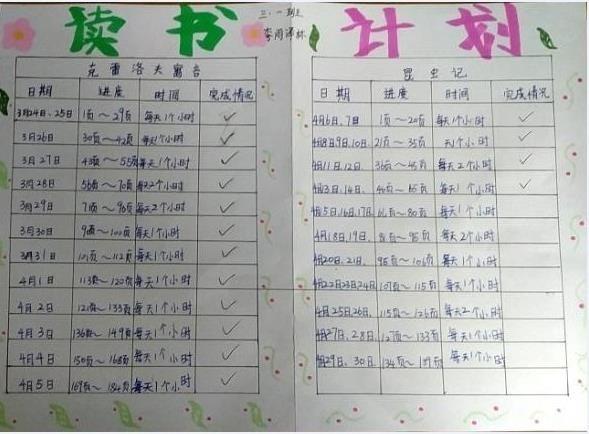 读书计划
三.一班
克雷洛夫寓言
日期 进度 时间 完成情况
3月24日、25日 1页～29页 每天1个小时 ✓
3月26日 30页～42页 每天1个小时 ✓
3月27日 43页～55页 每天1个小时 ✓
3月28日 56页～70页 每天2个小时 ✓
3月29日 71页～90页 每天2个小时 ✓
3月30日 每天1个小时 ✓
3月31日 101页～112页 每天1个小时 ✓
4月1日 113页～120页 每天1个小时 ✓
4月2日 121页～135页 每天1个小时 ✓
4月3日 136页～149页 每天1个小时 ✓
4月4日 150页～168页 每天1个小时 ✓
4月5日 169页～184页 每天1个小时 ✓
昆虫记
日期 进度 时间 完成情况
4月6日、7日 1页～20页 每天1个小时 ✓
4月8日9日、10日 21页～35页 天1个小时 ✓
4月11日、12日 36页～45页 每天2个小时 ✓
4月13日、14日、 46页～65页 每天1个小时 ✓
4月15日、16日、17日 每天1个小时
4月18日、19日、 81页～95页 每天2个小时
4月20日、21日、 96页～106页 每天1个小时
4月22日23日24日 107页～115页 每天1个小时
4月25日26日、 115页～126页 每天2个小时
4月27日、28日 127页～133页 每天1个小时
4月29日、30日 每天1个小时